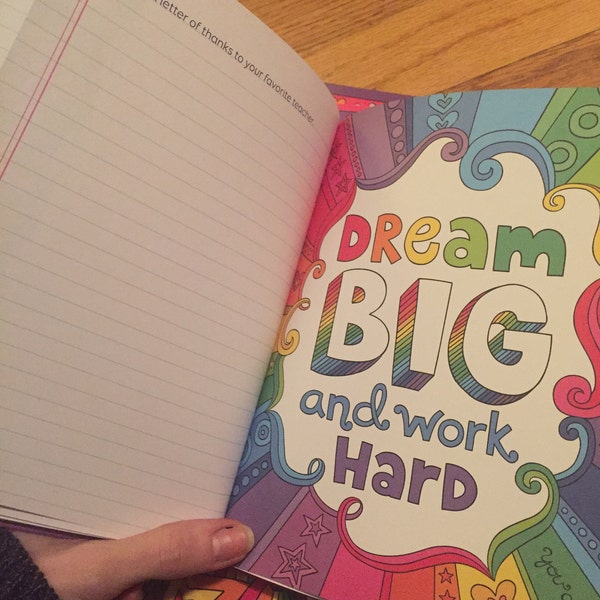 letter of thanks to your favorite teacher...
DREAM
BIG
and work
HARD